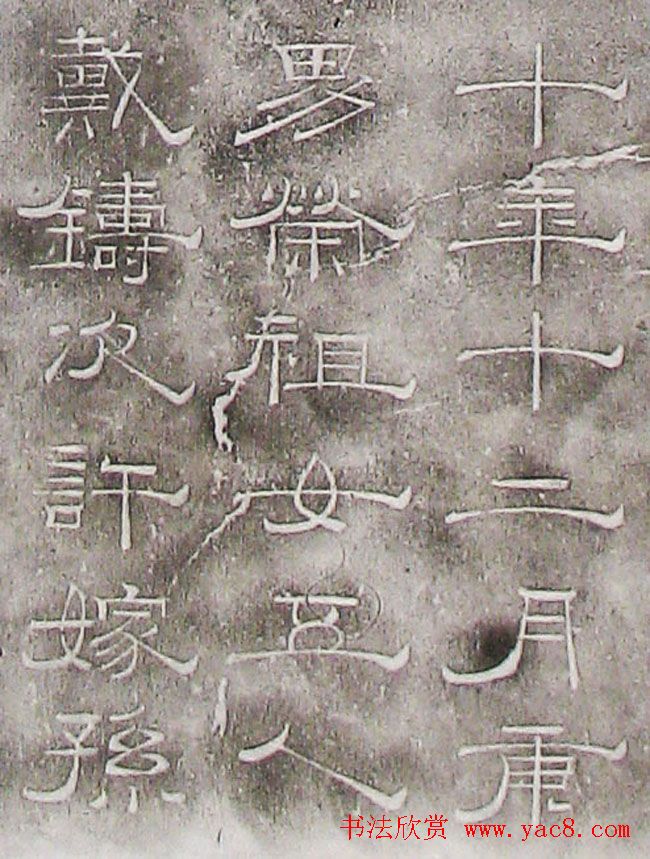 十年十二月庚
男榮祖女五人
戴鑄次許嫁孫
书法欣赏 www.yac8.com